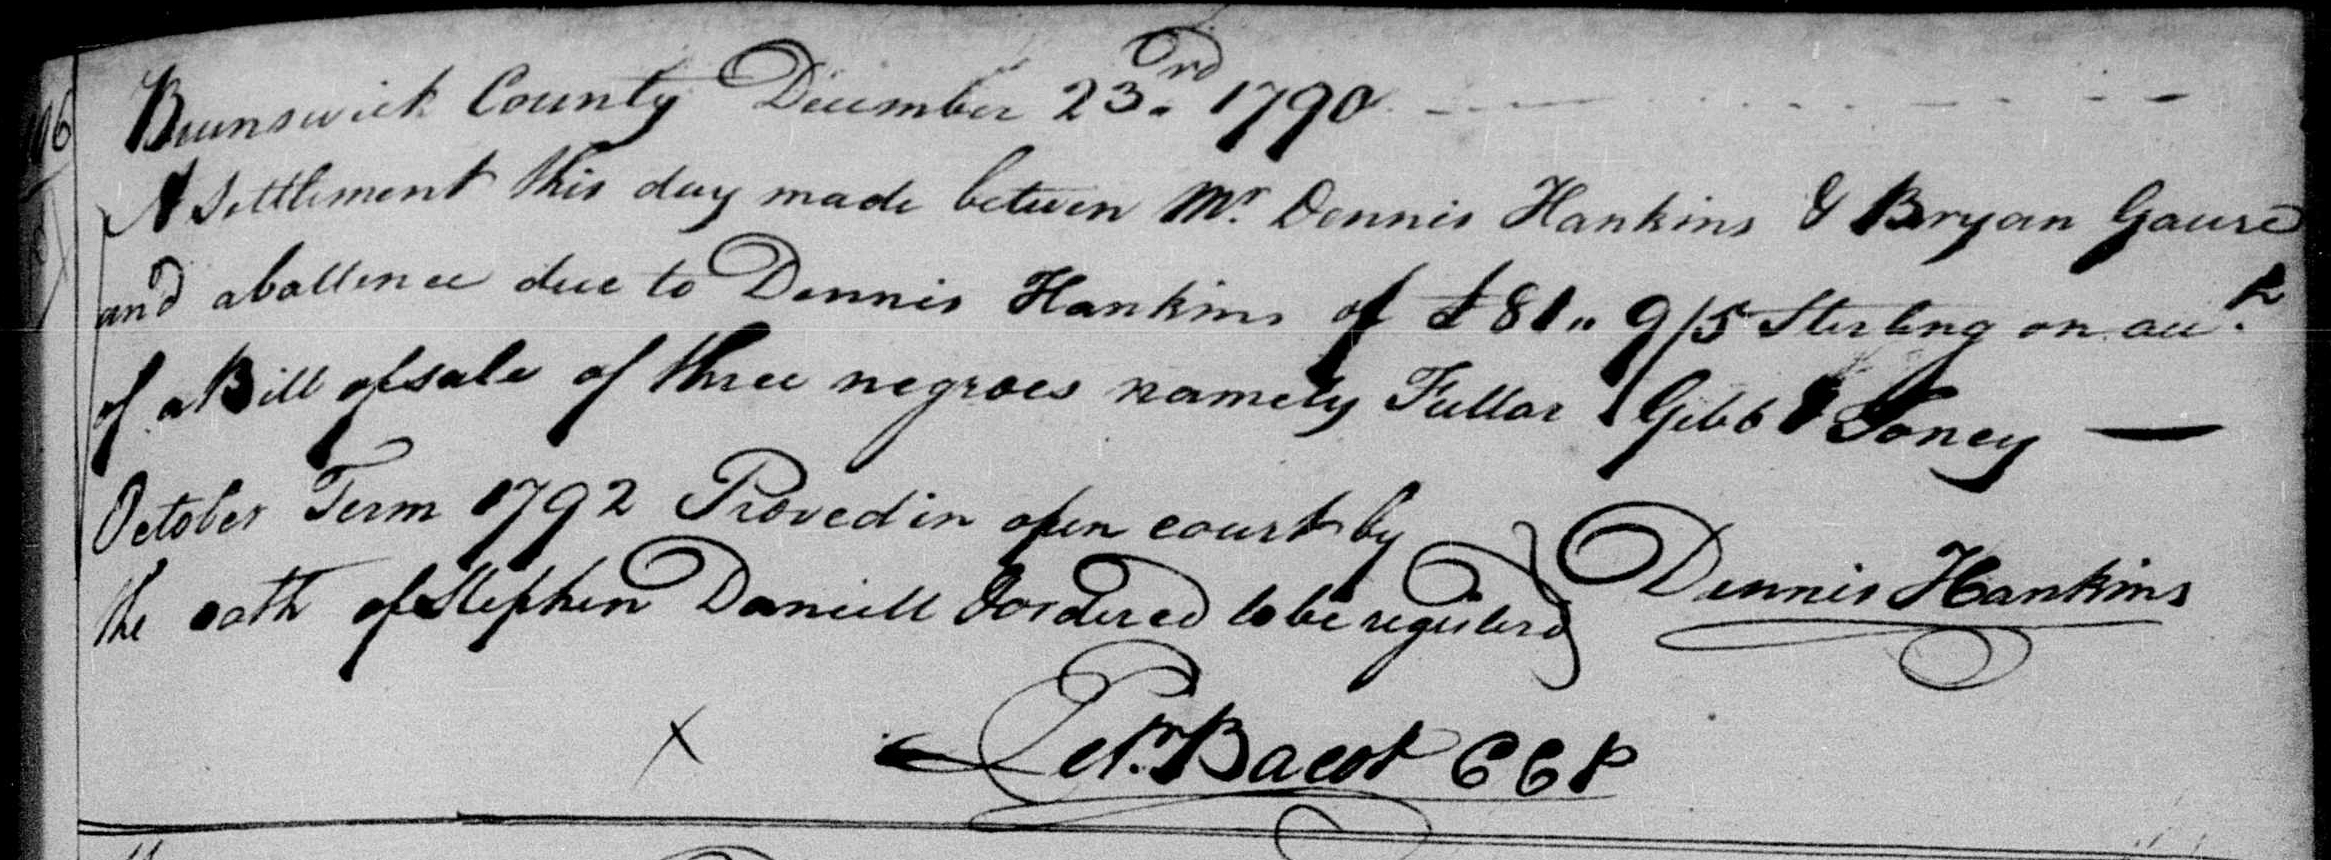 Brunswick County December 23.rd 1790
A Settlement this day made between Mr. Dennis Hankins & Bryan Gause
and aballence due to Dennis Hankins of £81„9/5 Sterling on acc.t
of a Bill of sale of three negroes namely Fullar Gibb & Toney —
October Term 1792 Proved in open court by
the oath of Stephen Daniell & ordered to be registerd
Dennis Hankins
Petr. Bacot CCP
X